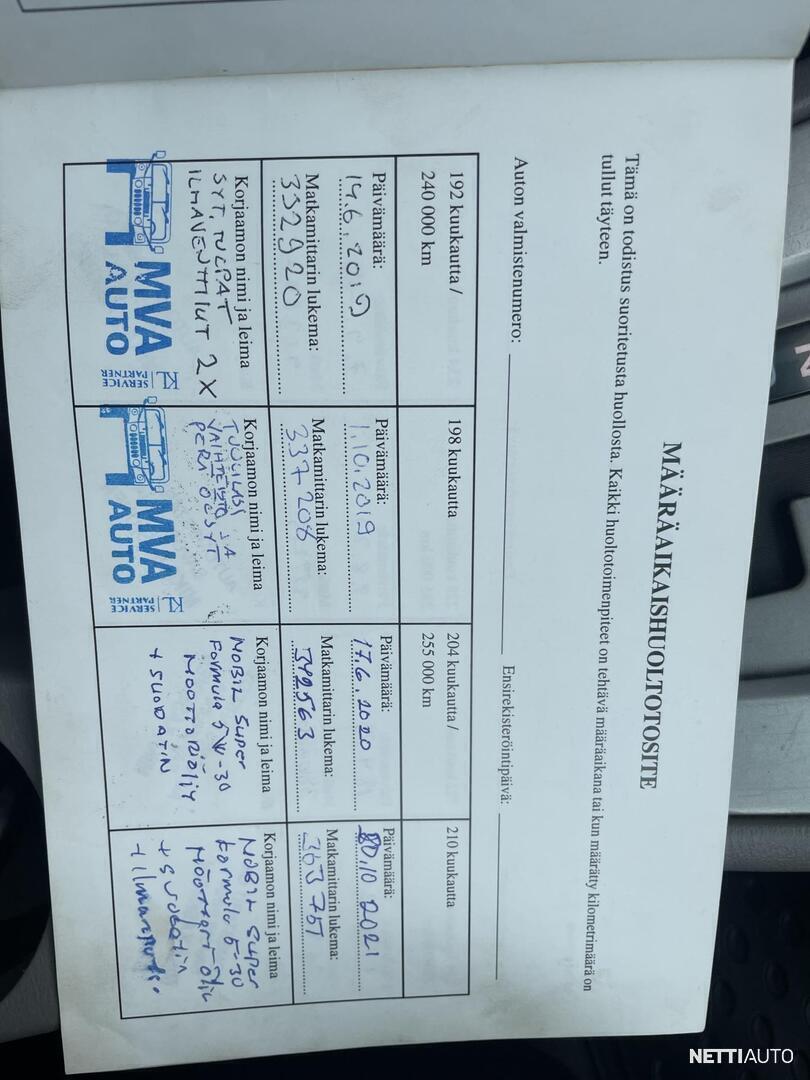 MÄÄRÄAIKAISHUOLTOTOSITE
Tämä on todistus suoritetusta huollosta. Kaikki huoltotoimenpiteet on tehtävä määräaikana tai kun määrätty kilometrimäärä on
tullut täyteen.
Auton valmistenumero:
Ensirekisteröintipäivä:
192 kuukautta /
240 000 km
Päivämäärä:
14.6.2019
Matkamittarin lukema:
332920
Korjaamon nimi ja leima
SYT. TULPAT
ILMAVENTTIILIUT 2X
MVA
AUTO
KL SERVICE
PARTNER
198 kuukautta
Päivämäärä:
1.10.2019
Matkamittarin lukema:
337 208
Korjaamon nimi ja leima
TUULILASI
VAIHTEISTO JA
PERÄ ÖLJYT
MVA
AUTO
KL SERVICE
PARTNER
204 kuukautta /
255 000 km
Päivämäärä:
17.6.2020
Matkamittarin lukema:
342563
Korjaamon nimi ja leima
MOBIL Super
Formula 5W-30
MOOTTORIÖLJY
+ SUODATIN
210 kuukautta
Päivämäärä:
10 2021
Matkamittarin lukema:
363 751
Korjaamon nimi ja leima
MOBIL Super
Formula 5-30
+ suodatin
NETTIAUTO